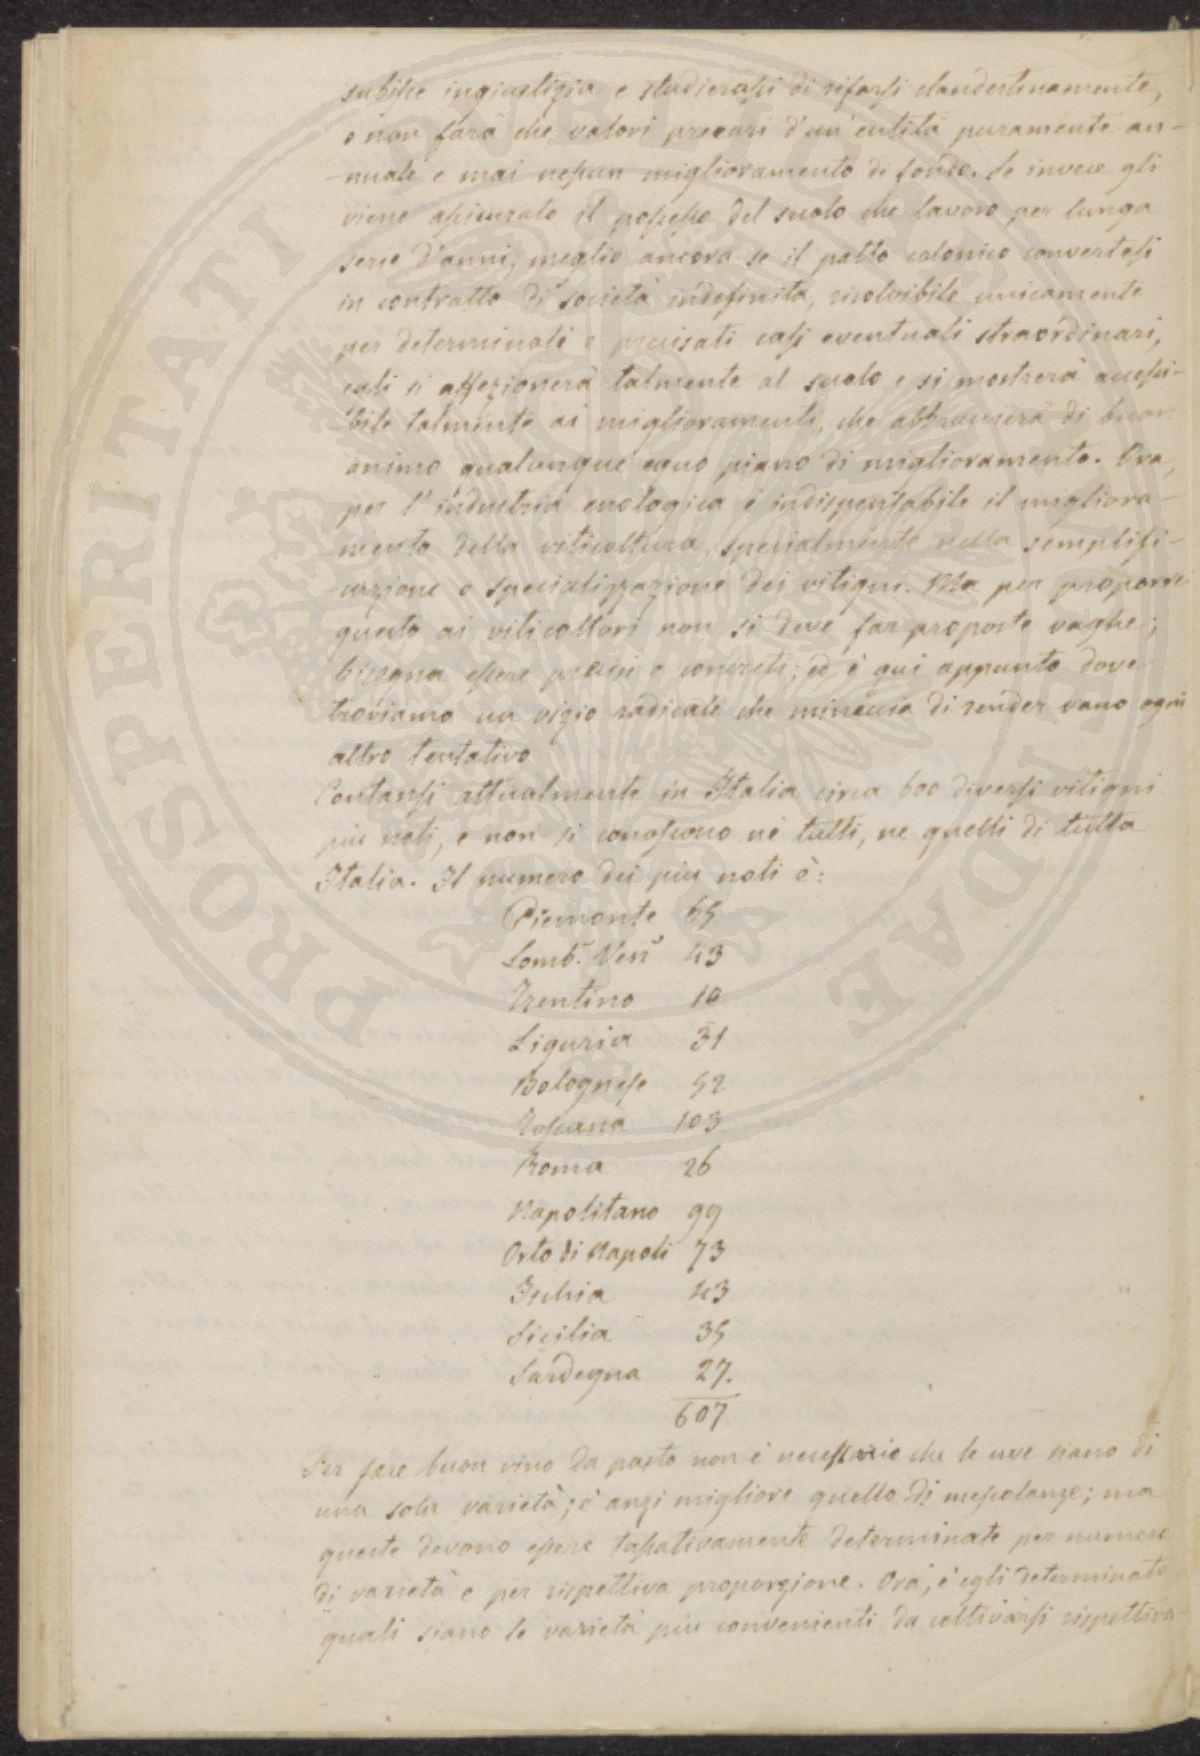 subisse ingiustizia e studierassi di rifarsi clandestinamente,
e non farà che valori precari d'un'entità puramente an-
-nuale e mai nessun miglioramento di fondo. Se invece gli
viene assicurato il possesso del suolo che lavora per lunga
serie d'anni, meglio ancora se il patto colonico convertesi
in contratto di società indefinita, risolvibile unicamente
per determinati e precisati casi eventuali straordinari,
egli si affezionerà talmente al suolo e si mostrerà accessi-
-bile talmente ai miglioramenti, che abbraccierà di buon
animo qualunque equo piano di miglioramento. Ora,
per l'industria enologica è indispensabile il migliora-
-mento della viticoltura, specialmente nella semplifi-
-cazione e specializzazione dei vitigni. Ma per proporre
questo ai viticoltori non si deve far proposte vaghe;
bisogna essere precisi e concreti; ed è qui appunto dove
troviamo un vizio radicale che minaccia di render vano ogni
altro tentativo
Contansi attualmente in Italia circa 600 diversi vitigni
più noti, e non si conoscono nè tutti, ne quelli di tutta
Italia. Il numero dei più noti è:
Piemonte 65
Lomb. Ven° 43
Trentino 10
Liguria 31
Bolognese 52
Toscana 103
Roma 26
Napolitano 99
Orto di Napoli 73
Ischia 43
Sicilia 35
Sardegna 27.
607
Per fare buon vino da pasto non è necessario che le uve siano di
una sola varietà; è anzi migliore quello di mescolanze; ma
queste devono essere tassativamente determinate per numero
di varietà e per rispettiva proporzione. Ora, è egli determinato
quali siano le varietà più convenienti da coltivarsi rispettiva-
PROSPERITATI PUBLICAE AUGENDAE